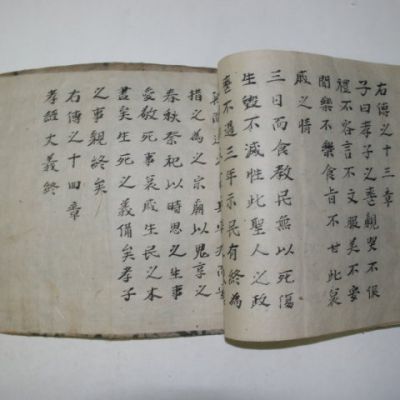 右傳之十三章
子曰孝子之喪親哭不偯
禮不容言不文服美不安
聞樂不樂食旨不甘此哀
戚之情
三日而食教民無以死傷
生毀不滅性此聖人之政
喪不過三年示民有終為
措之為之宗廟以鬼享之
春秋祭祀以時思之生事
愛敬死事哀戚生民之本
盡矣生死之義備矣孝子
之事親終矣
右傳之十四章
孝經大義終